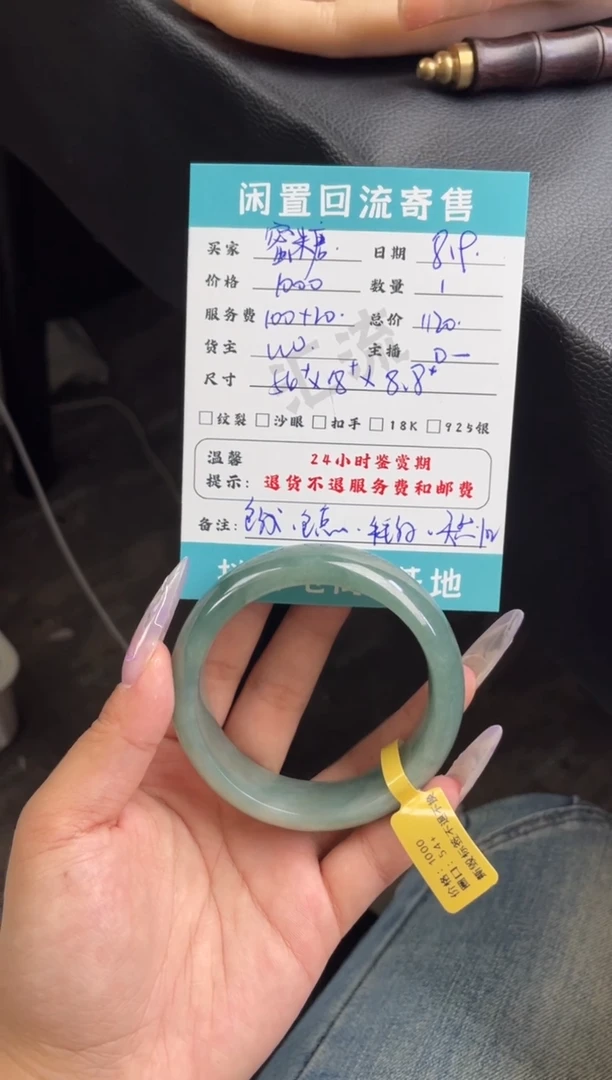 闲置回流寄售
买家 蜜糖. 日期 8.19.
价格 1000 数量 1
服务费 100+20. 总价 1120.
货主 主播
尺寸 56⁺×18⁺×8.8⁺
汇流
□纹裂 □沙眼 □扣手 □18K □925银
温馨 24小时鉴赏期
提示: 退货不退服务费和邮费
备注:
基地
价格：1000
圈口：54+
剪毁标签不退不换